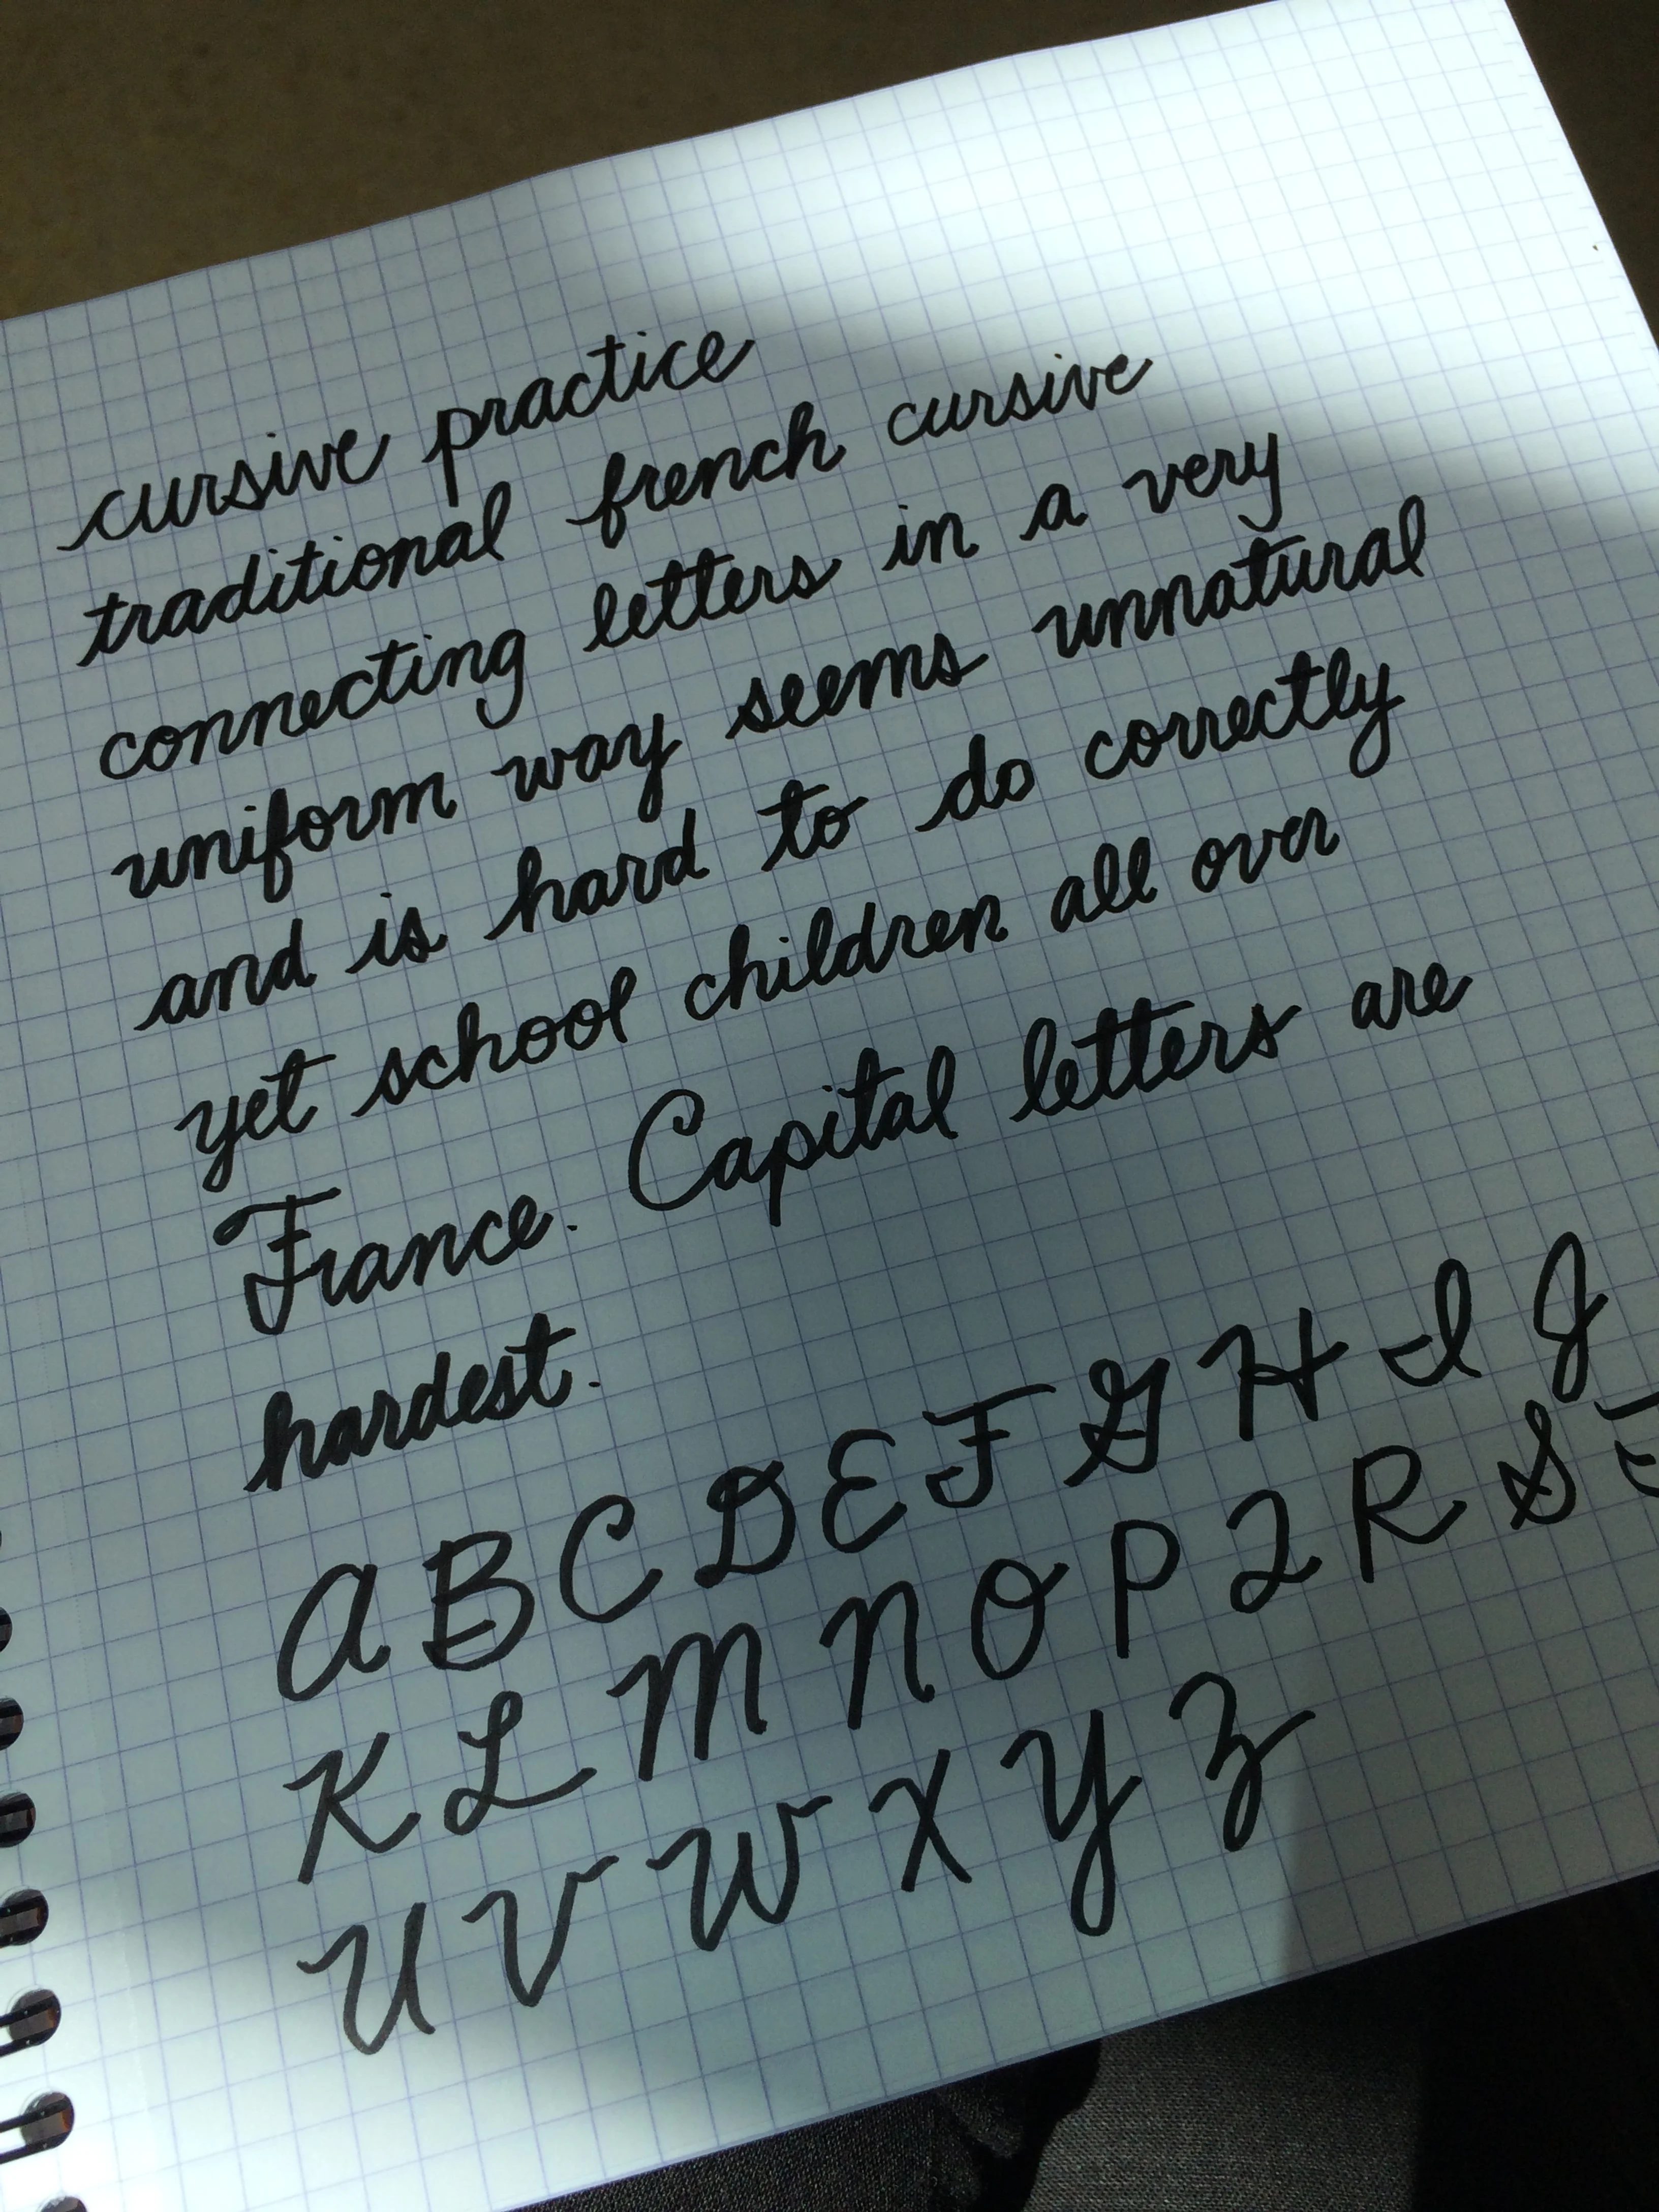 cursive practice
traditional french cursive
connecting letters in a very
uniform way seems unnatural
and is hard to do correctly
yet school children all over
France. Capital letters are
hardest.
A B C D E F G H I J
K L M N O P Q R S T
U V W X Y Z